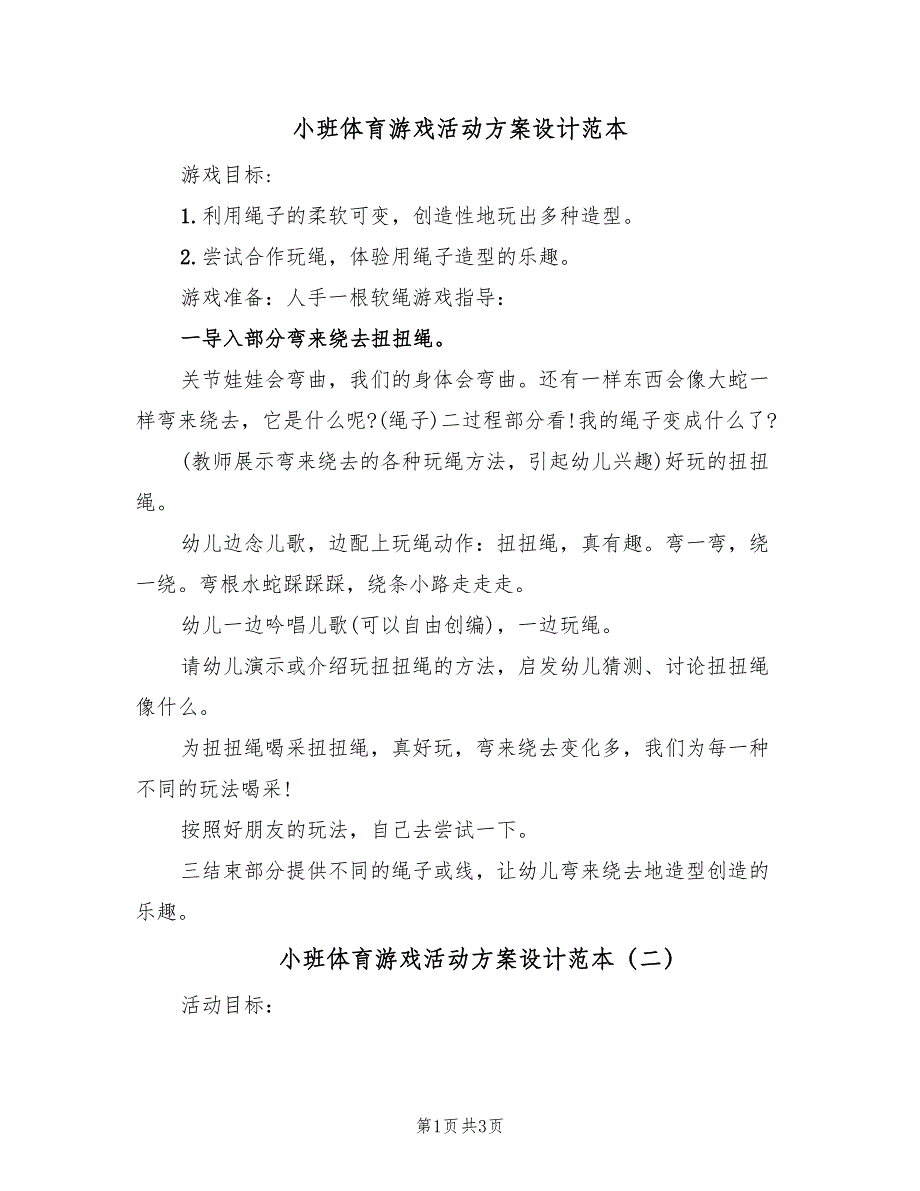 小班体育游戏活动方案设计范本
游戏目标:
1.利用绳子的柔软可变，创造性地玩出多种造型。
2.尝试合作玩绳，体验用绳子造型的乐趣。
游戏准备：人手一根软绳游戏指导：
一导入部分弯来绕去扭扭绳。
关节娃娃会弯曲，我们的身体会弯曲。还有一样东西会像大蛇一
样弯来绕去，它是什么呢?(绳子)二过程部分看!我的绳子变成什么了?
(教师展示弯来绕去的各种玩绳方法，引起幼儿兴趣)好玩的扭扭
绳。
幼儿边念儿歌，边配上玩绳动作：扭扭绳，真有趣。弯一弯，绕
一绕。弯根水蛇踩踩踩，绕条小路走走走。
幼儿一边吟唱儿歌(可以自由创编)，一边玩绳。
请幼儿演示或介绍玩扭扭绳的方法，启发幼儿猜测、讨论扭扭绳
像什么。
为扭扭绳喝采扭扭绳，真好玩，弯来绕去变化多，我们为每一种
不同的玩法喝采!
按照好朋友的玩法，自己去尝试一下。
三结束部分提供不同的绳子或线，让幼儿弯来绕去地造型创造的
乐趣。
小班体育游戏活动方案设计范本（二）
活动目标：
第1页共3页